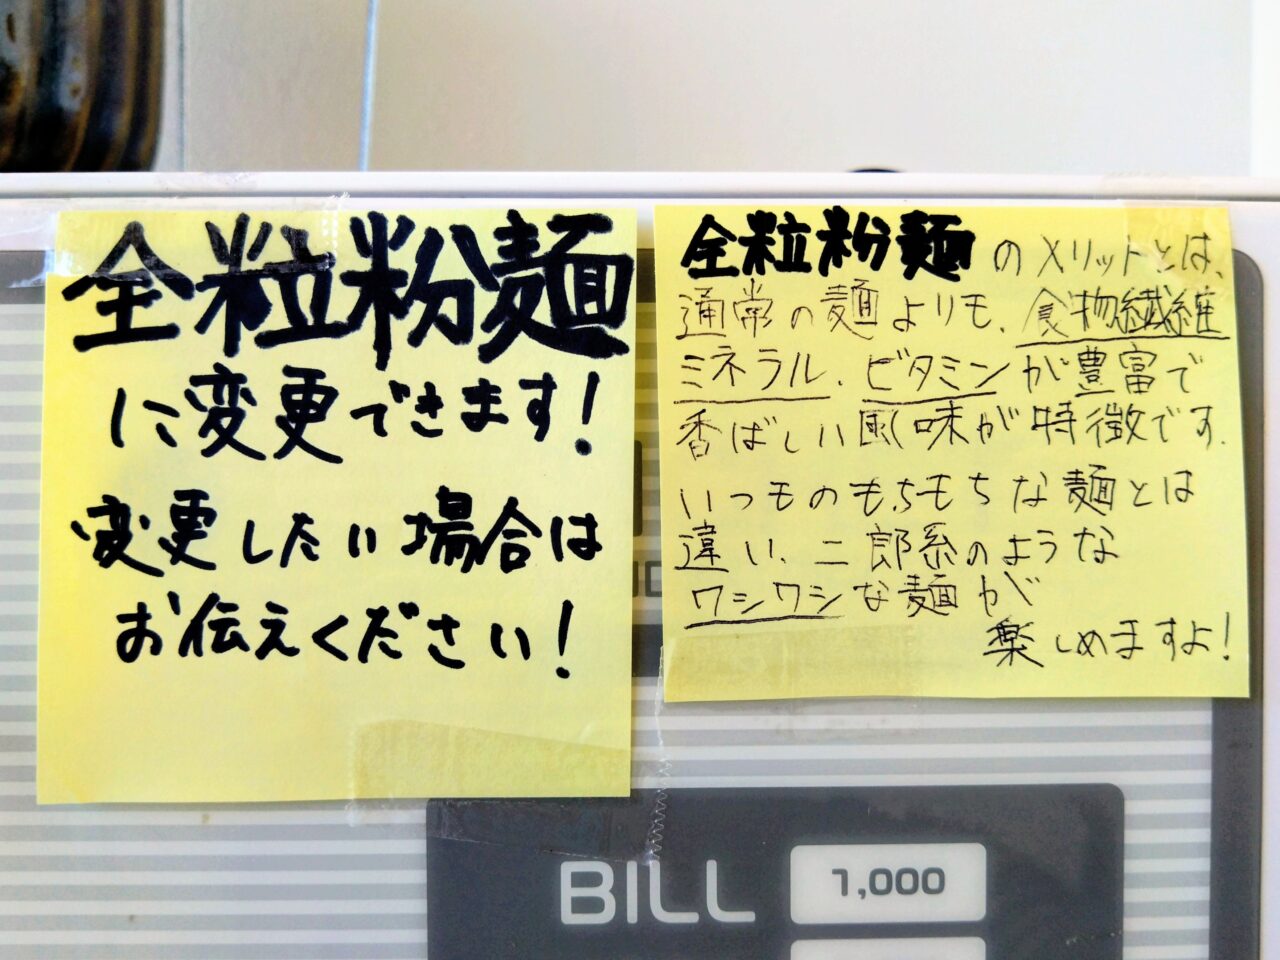 全粒粉麺
に変更できます!
変更したい場合は
お伝えください!
全粒粉麺のメリットとは、
通常の麺よりも、食物繊維
ミネラル、ビタミンが豊富で
香ばしい風味が特徴です。
いつものもちもちな麺とは
違い、二郎系のような
ワシワシな麺が
楽しめますよ!
BILL
1,000